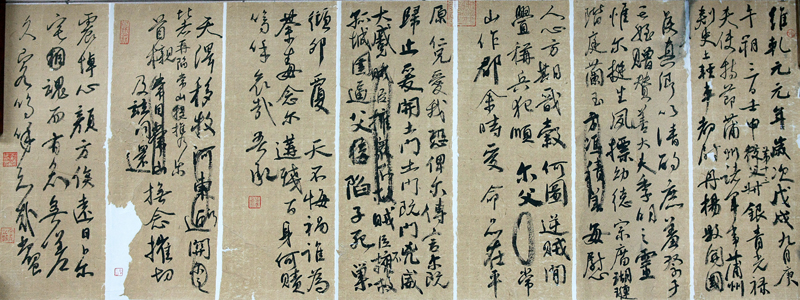 維乾元元年歲次戊戌九月庚
午朔三日壬申第十三叔銀青光祿
夫使持節蒲州諸軍事蒲州
刺史上輕車都尉丹楊縣開國
侯真卿以清酌庶羞祭于
亡姪贈贊善大夫季明之靈
惟爾挺生夙標幼德宗廟瑚璉
階庭蘭玉每慰
人心方期戩穀何圖逆賊閒
釁稱兵犯順爾父常
山作郡余時受命亦在平
原仁兄愛我恐俾爾傳言爾既
歸止爰開土門土門既開凶威
大蹙賊臣不救
孤城圍逼父陷子死巢
傾卵覆天不悔禍誰為
荼毒念爾遘殘百身何贖
嗚呼哀哉吾承
天澤移牧河東近
比者再陷常山攜爾
首櫬撫念摧切
及茲同還
震悼心顏方俟遠日卜爾
宅相魂而有知無嗟
久客嗚呼哀哉尚饗